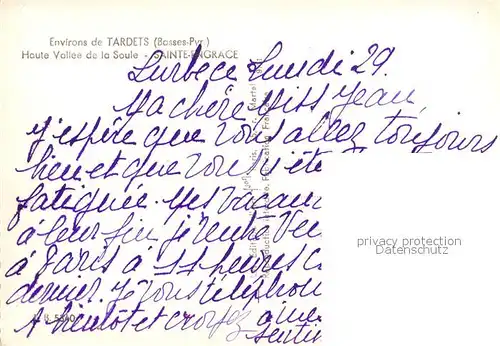 Environs de TARDETS (Basses-Pyr.)
Haute Vallée de la Soule - SAINTE-ENGRACE
Lurbe ce Lundi 29.
Ma chère Miss Jean,
J'espère que vous allez toujours
bien et que vous n'êtes
fatiguée. Mes vacan
à leur fin, je rentre Ven
à Paris à 11 heures
dernier. Je vous téléphon
A bientôt et croyez à me
sentim
privacy protection
Datenschutz